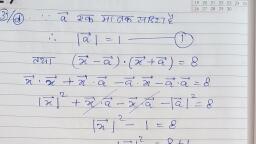 ③/(d) ∵ a⃗ एक मात्रक सदिश है
∴ |a⃗| = 1 — ①
तथा (x⃗ - a⃗)·(x⃗ + a⃗) = 8
x⃗·x⃗ + x⃗·a⃗ - a⃗·x⃗ - a⃗·a⃗ = 8
|x⃗|² + x⃗·a⃗ - x⃗·a⃗ - |a⃗|² = 8
|x⃗|² - 1 = 8